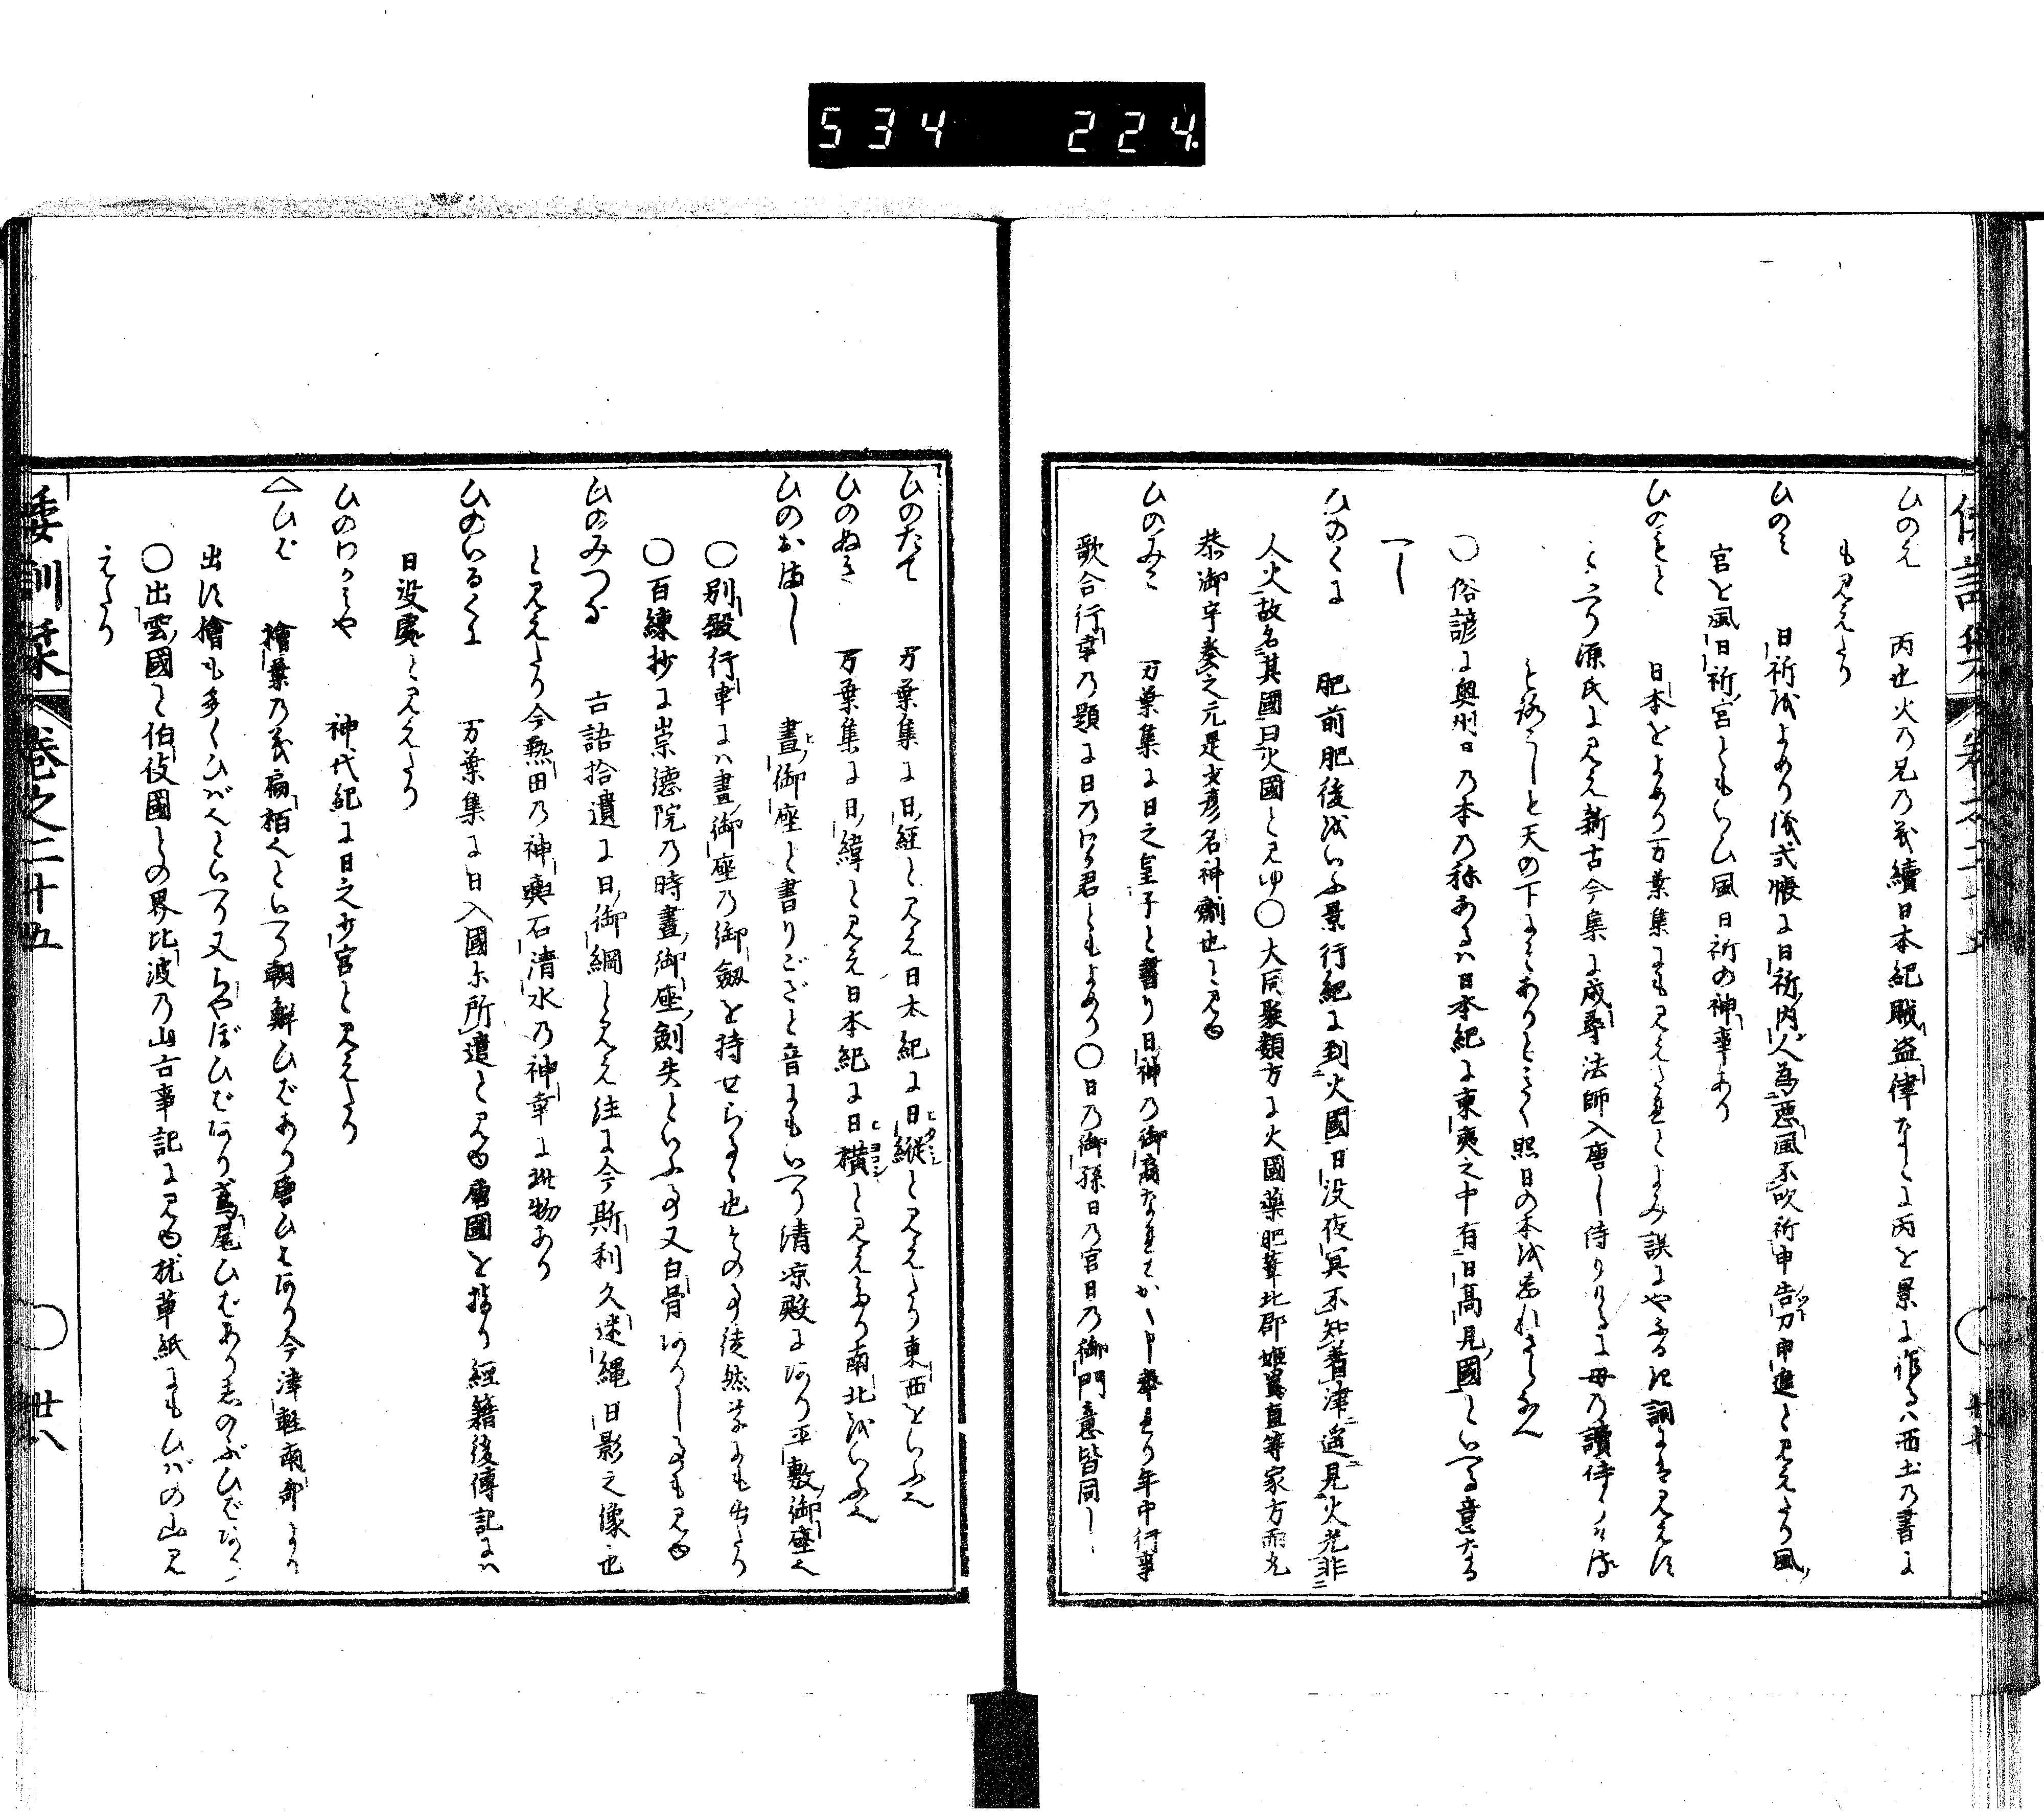 534 224
ひのえ 丙也火乃兄乃義續日本紀賊盗律なとに丙を景に作るハ西土乃書に
も見えたり
日祈をよめり儀式帳に日祈内人為悪風不吹祈申告刀申進と見えたり風
宮を風日祈宮ともいひ風日祈の神事あり
ひのもと 日本をよめり万葉集にも見えたれとよみ誤にやふるき詞には見えす
といへり源氏に見え新古今集に成尋法師入唐し侍りけるに母乃讀侍ける
もろこしも天の下にそありときく照日の本を忘れさらなん
〇俗諺に奥州日乃本乃称あるハ日本紀に東夷之中有日高見國といへる意なる
へし
ひのくに 肥前肥後をいふ景行紀に到火國日没夜冥不知著津遥見火光非
人火故名其國曰火國と見ゆ〇大同聚類方に火國薬肥葦北郡姫島直等家方而元
恭御宇奏之元是少彦名神劑也と見ゆ
ひのみこ 万葉集に日之皇子と書り日神乃御裔なれはかく申奉れり年中行事
歌合行幸乃題に日乃わか君ともよめり〇日乃御孫日乃宮日乃御門意皆同し
ひのたて 万葉集に日経と見え日本紀に日縦と見えたり東西をいふ也
ひのぬき 万葉集に日緯と見え日本紀に日横と見えたり南北をいふ也
ひのおまし 晝御座と書りござと音にもいへり清凉殿にあり平敷御座也
〇別殿行幸にハ晝御座乃御劔を持せらるゝ也その事徒然草にも出たり
〇百練抄に崇德院乃時晝御座劍失といふ事又白骨ありし事も見ゆ
ひのみつな 古語拾遺に日御綱と見え注に今斯利久迷縄日影之像也
と見えたり今熱田乃神輿石清水乃神幸に此物あり
ひのいるくに 万葉集に日入國尓所遣と見ゆ唐國を指り經籍後傳記にハ
日没處と見えたり
ひのわかみや 神代紀に日之少宮と見えたり
△ひば 檜葉乃義扁栢也といへり朝鮮ひばあり唐ひはあり今津軽南部より
出す檜も多くひば也といへり又ちやぼひばあり鳶尾ひばありしのぶひばあり
〇出雲國と伯伎國との界比波乃山古事記に見ゆ枕草紙にもひばの山見
えたり
倭訓栞 巻之二十五 廿八